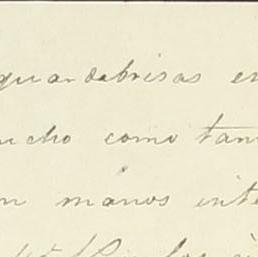 guardabrisas en
ucho como tam
n manos inte
los